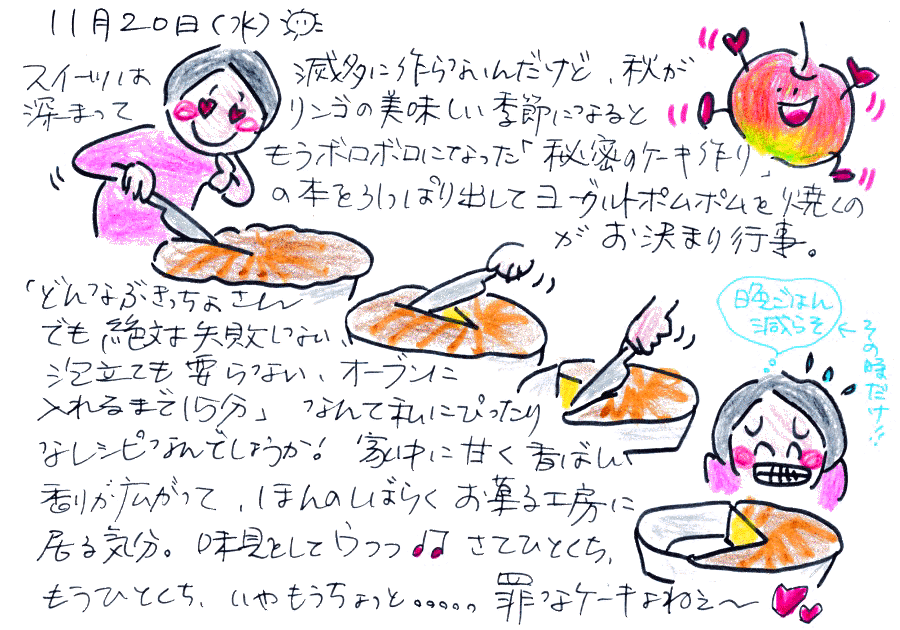 11月20日(水)
スイーツは滅多に作らないんだけど、秋が
深まってリンゴの美味しい季節になると
もうボロボロになった「秘密のケーキ作り」
の本をひっぱり出してヨーグルトポムポムを焼くの
がお決まり行事。
「どんなぶきっちょさん
でも絶対失敗しない、
泡立ても要らない、オーブンに
入れるまで15分」なんて私にぴったり
なレシピなんでしょうか!家中に甘く香ばしい
香りが広がって、ほんのしばらくお菓子工房に
居る気分。味見としてウフフ さてひとくち、
もうひとくち、いやもうちょっと。。。。。罪なケーキよねぇ〜
晩ごはん
減らそ
←その時だけ!!